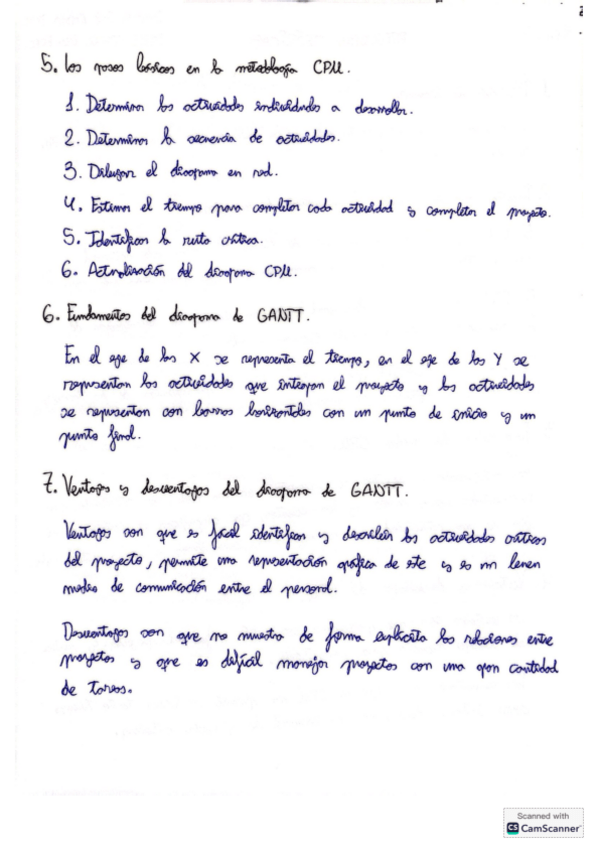 5. Los pasos básicos en la metodología CPM.
1. Determinar las actividades individuales a desarrollar.
2. Determinar la secuencia de actividades.
3. Dibujar el diagrama en red.
4. Estimar el tiempo para completar cada actividad y completar el proyecto.
5. Identificar la ruta crítica.
6. Actualización del diagrama CPM.
6. Fundamentos del diagrama de GANTT.
En el eje de las X se representa el tiempo, en el eje de las Y se
representan las actividades que integran el proyecto y las actividades
se representan con barras horizontales con un punto de inicio y un
punto final.
7. Ventajas y desventajas del diagrama de GANTT.
Ventajas son que es fácil identificar y describir las actividades críticas
del proyecto, permite una representación gráfica de este y es un buen
medio de comunicación entre el personal.
Desventajas son que no muestra de forma explícita las relaciones entre
proyectos y que es difícil manejar proyectos con una gran cantidad
de tareas.
Scanned with
CS CamScanner